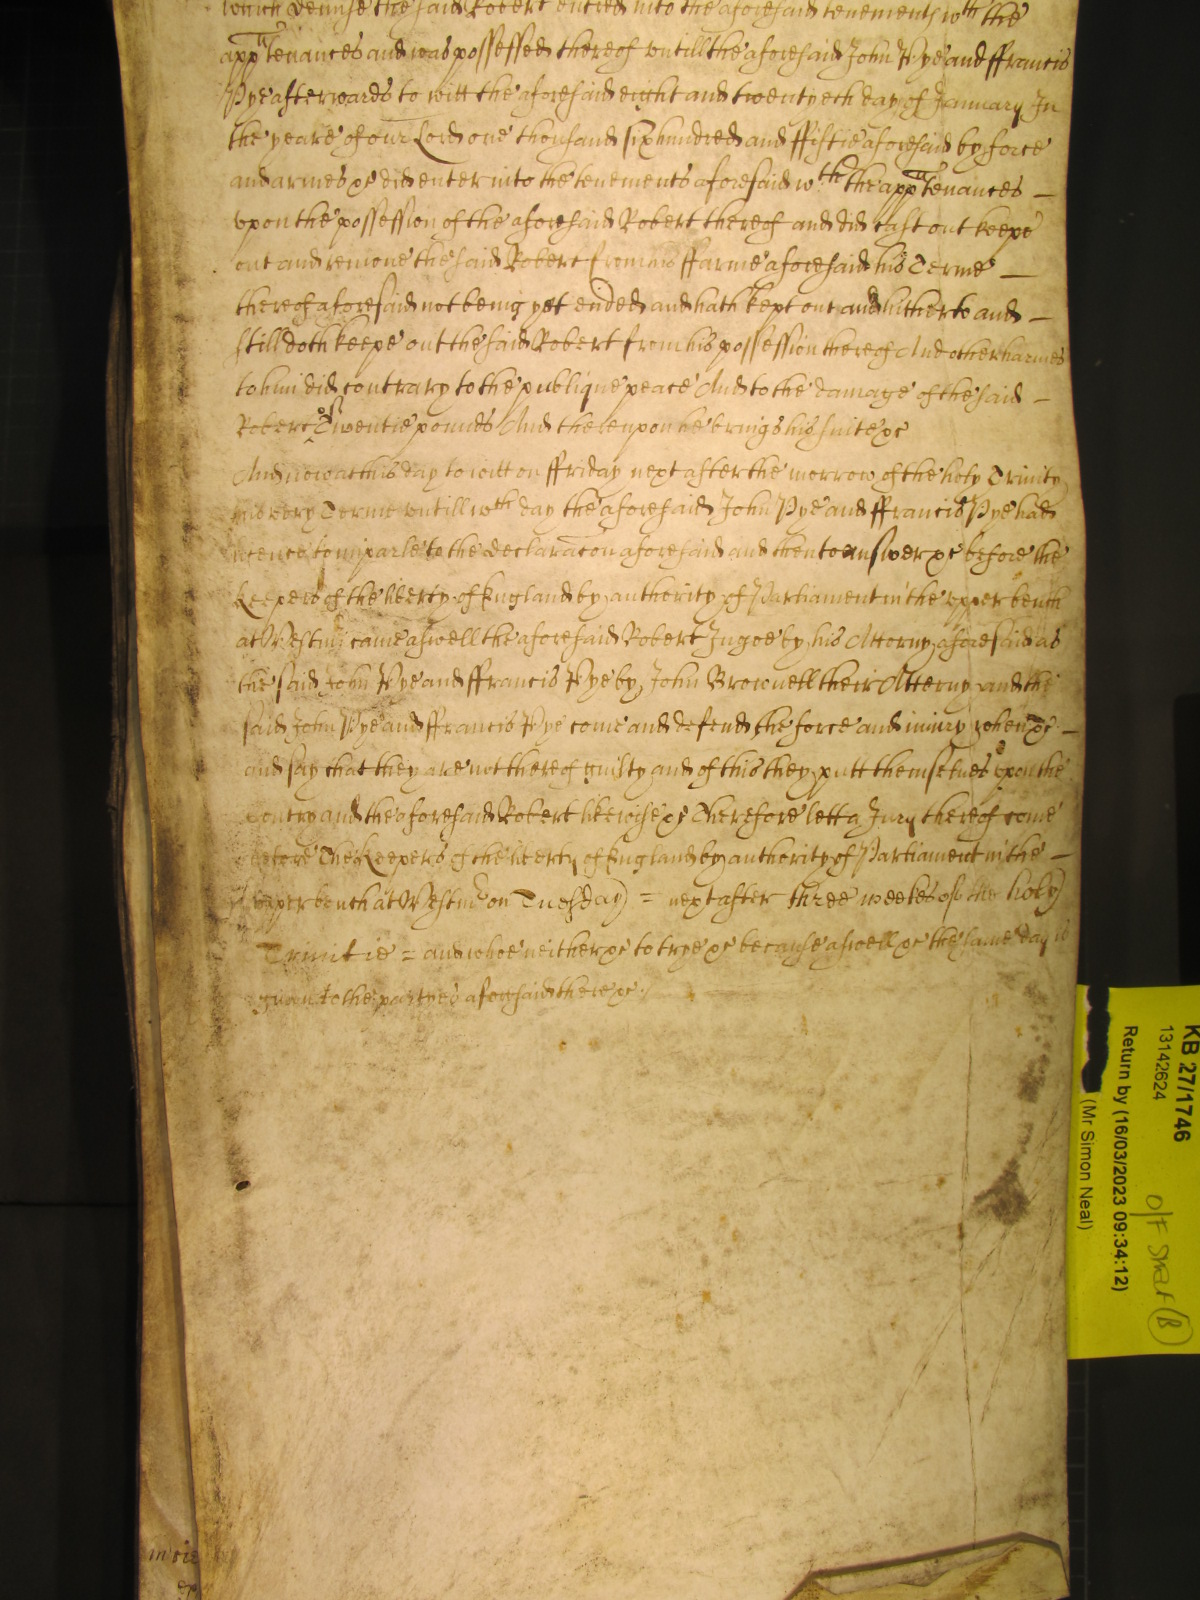 which demise the said Robert entred into the aforesaid tenements wth the
apptenances and was possessed thereof untill the aforesaid John Pye and ffrancis
Pye afterwards to witt the aforesaid eight and twentyeth day of January In
the yeare of our Lord one thousand six hundred and ffiftie aforesaid by force
and armes &c did enter into the tenements aforesaid wth the apptenances —
upon the possession of the aforesaid Robert thereof and did cast out keepe
out and remove the said Robert from his ffarme aforesaid his Terme —
thereof aforesaid not being yet ended and hath kept out and hitherto and —
still doth keepe out the said Robert from his possession thereof And other harmes
to him did contrary to the publique peace And to the damage of the said —
Robert of Twentie pounds And thereupon he brings his suite &c
And now at this day to witt on ffriday next after the morrow of the holy Trinity
this very Terme untill wch day the aforesaid John Pye and ffrancis Pye had
licence to imparle to the declaracon aforesaid and then to answer &c before the
Keepers of the liberty of England by authority of Parliament in the upper bench
at Westm; came aswell the aforesaid Robert Ingoe by his Attorny aforesaid as
the said John Pye and ffrancis Pye by John Brownell their Attorny and the
said John Pye and ffrancis Pye come and defend the force and iniury when &c —
and say that they are not thereof guilty and of this they putt themselves upon the
Contry and the aforesaid Robert likewise &c Therefore lett a Jury thereof come
before The Keepers of the liberty of England by authority of Parliament in the —
upper bench at Westm on Tuesday = next after three weekes of the holy
Trinitie = and whoe neither &c to trye &c because aswell &c the same day is
given to the partyes aforesaid there &c.
KB 27/1746
13142624
Return by (16/03/2023 09:34:12)
(Mr Simon Neal)
O/F
B